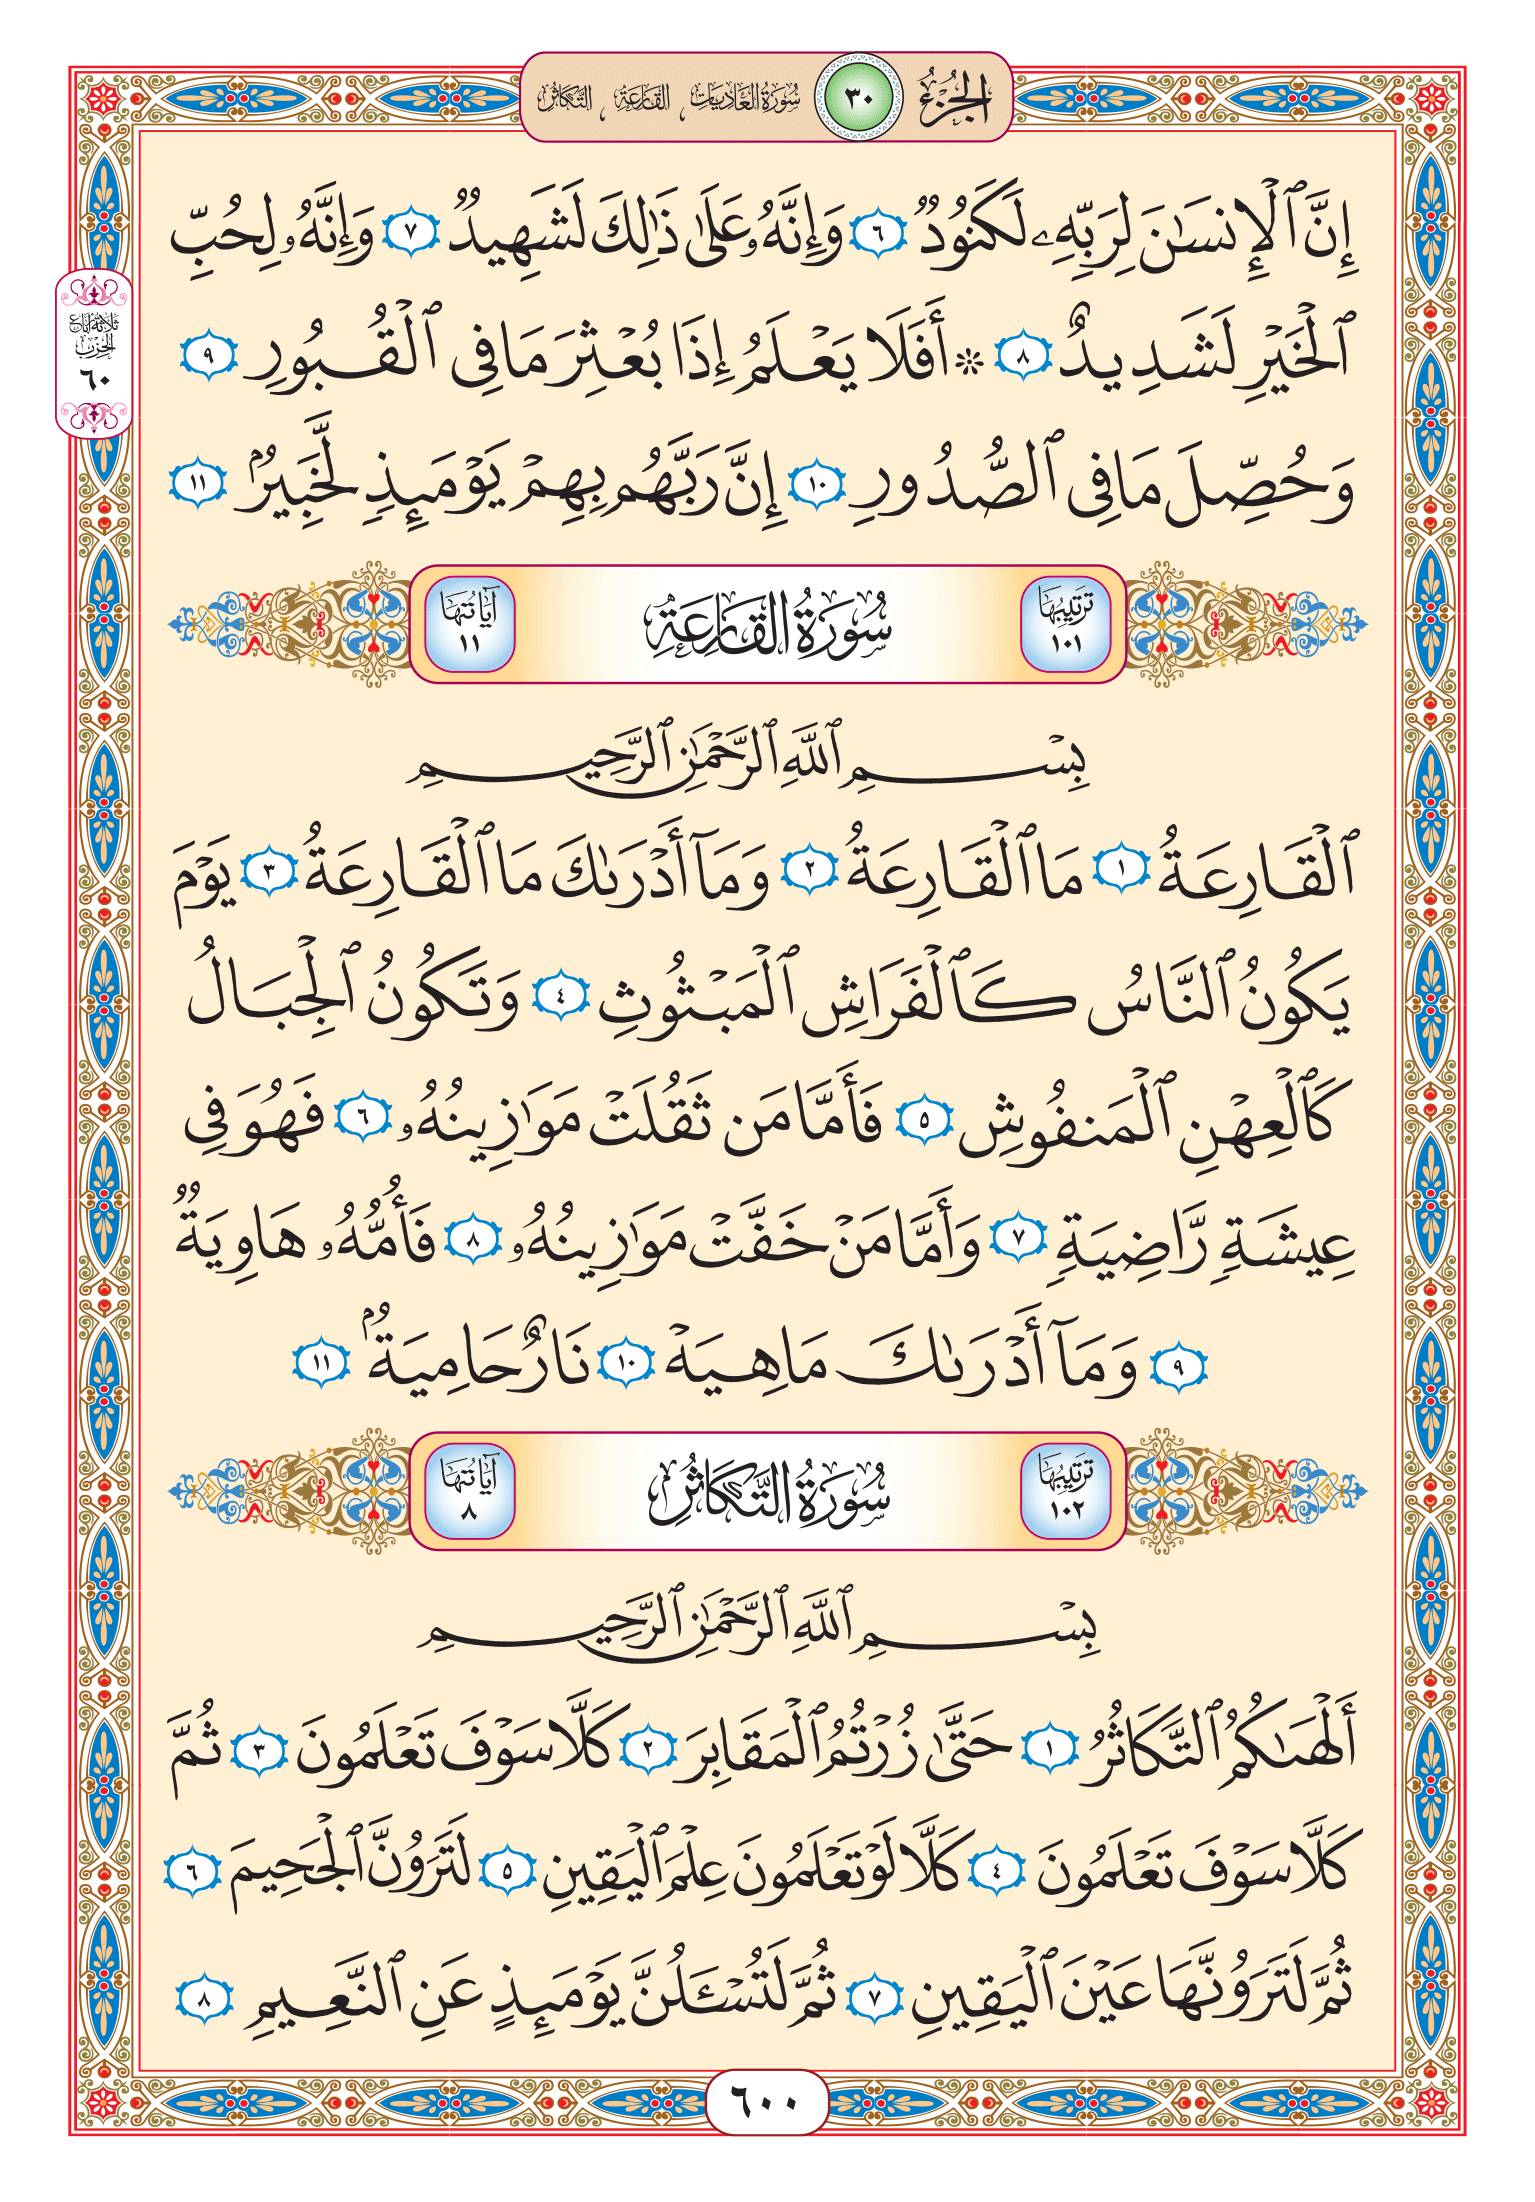 الجزء ٣٠ سورة العاديات ، القارعة ، التكاثر
إِنَّ ٱلْإِنسَٰنَ لِرَبِّهِۦ لَكَنُودٌ ٦ وَإِنَّهُۥ عَلَىٰ ذَٰلِكَ لَشَهِيدٌ ٧ وَإِنَّهُۥ لِحُبِّ
ٱلْخَيْرِ لَشَدِيدٌ ٨ * أَفَلَا يَعْلَمُ إِذَا بُعْثِرَ مَا فِي ٱلْقُبُورِ ٩
ثلاثة أرباع
الحزب
٦٠
وَحُصِّلَ مَا فِي ٱلصُّدُورِ ١٠ إِنَّ رَبَّهُم بِهِمْ يَوْمَئِذٍ لَّخَبِيرٌۢ ١١
ترتيبها ١٠١ سورة القارعة آياتها ١١
بِسْمِ ٱللَّهِ ٱلرَّحْمَٰنِ ٱلرَّحِيمِ
ٱلْقَارِعَةُ ١ مَا ٱلْقَارِعَةُ ٢ وَمَآ أَدْرَىٰكَ مَا ٱلْقَارِعَةُ ٣ يَوْمَ
يَكُونُ ٱلنَّاسُ كَٱلْفَرَاشِ ٱلْمَبْثُوثِ ٤ وَتَكُونُ ٱلْجِبَالُ
كَٱلْعِهْنِ ٱلْمَنفُوشِ ٥ فَأَمَّا مَن ثَقُلَتْ مَوَٰزِينُهُۥ ٦ فَهُوَ فِي
عِيشَةٍ رَّاضِيَةٍ ٧ وَأَمَّا مَنْ خَفَّتْ مَوَٰزِينُهُۥ ٨ فَأُمُّهُۥ هَاوِيَةٌ
٩ وَمَآ أَدْرَىٰكَ مَا هِيَهْ ١٠ نَارٌ حَامِيَةٌۢ ١١
ترتيبها ١٠٢ سورة التكاثر آياتها ٨
بِسْمِ ٱللَّهِ ٱلرَّحْمَٰنِ ٱلرَّحِيمِ
أَلْهَىٰكُمُ ٱلتَّكَاثُرُ ١ حَتَّىٰ زُرْتُمُ ٱلْمَقَابِرَ ٢ كَلَّا سَوْفَ تَعْلَمُونَ ٣ ثُمَّ
كَلَّا سَوْفَ تَعْلَمُونَ ٤ كَلَّا لَوْ تَعْلَمُونَ عِلْمَ ٱلْيَقِينِ ٥ لَتَرَوُنَّ ٱلْجَحِيمَ ٦
ثُمَّ لَتَرَوُنَّهَا عَيْنَ ٱلْيَقِينِ ٧ ثُمَّ لَتُسْـَٔلُنَّ يَوْمَئِذٍ عَنِ ٱلنَّعِيمِ ٨
٦٠٠